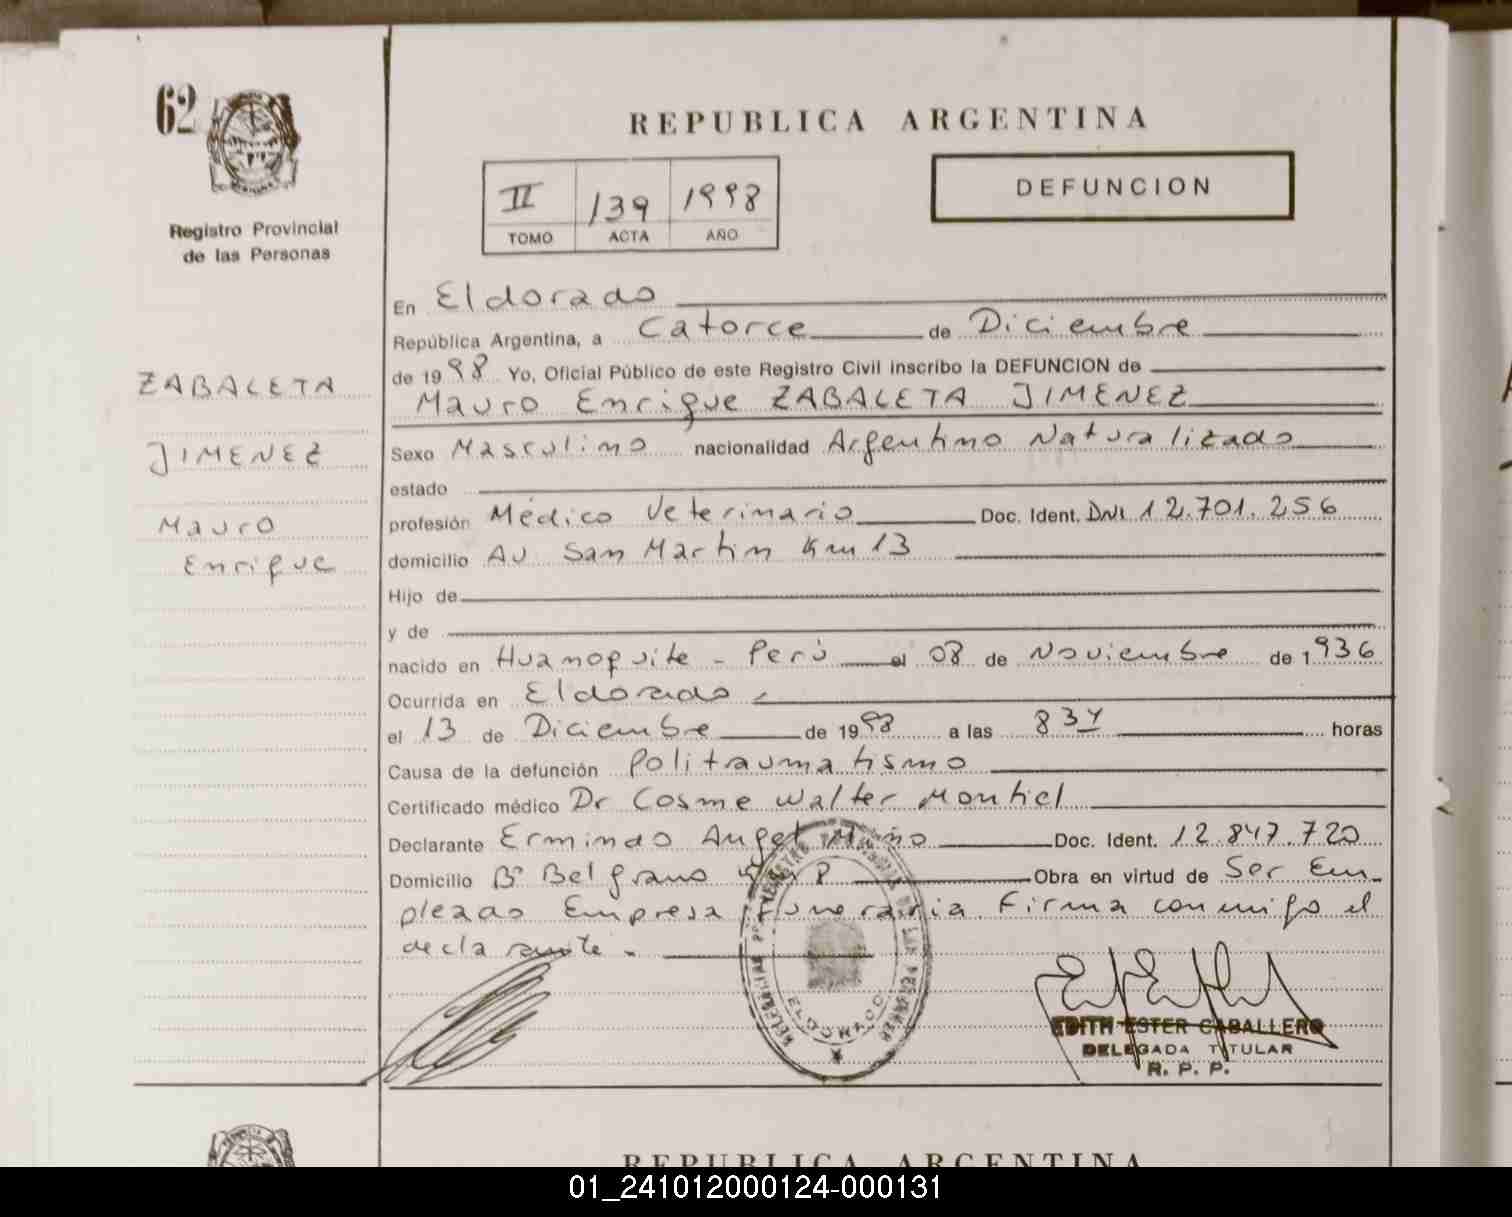 62
REPUBLICA ARGENTINA
II 139 1998
TOMO ACTA AÑO
DEFUNCION
Registro Provincial
de las Personas
ZABALETA
JIMENEZ
Mauro
Enrique
En Eldorado
República Argentina, a Catorce de Diciembre
de 1998 Yo, Oficial Público de este Registro Civil inscribo la DEFUNCION de
Mauro Enrique ZABALETA JIMENEZ
Sexo Masculino nacionalidad Argentino Naturalizado
estado
profesión Médico Veterinario Doc. Ident. DNI 12.701.256
domicilio Av San Martin Km 13
Hijo de
y de
nacido en Huanoquite - Perú el 08 de Noviembre de 1936
Ocurrida en Eldorado
el 13 de Diciembre de 1998 a las 8 horas
Causa de la defunción Politraumatismo
Certificado médico Dr Cosme Walter Montiel
Declarante Ermindo Angel Doc. Ident. 12.847.720
Domicilio Bº Belgrano Obra en virtud de Ser Em-
pleado Empresa Funeraria. Firma conmigo el
declarante.-
ELDORADO
EDITH ESTER CABALLERO
DELEGADA TITULAR
R. P. P.
REPUBLICA ARGENTINA
01_241012000124-000131